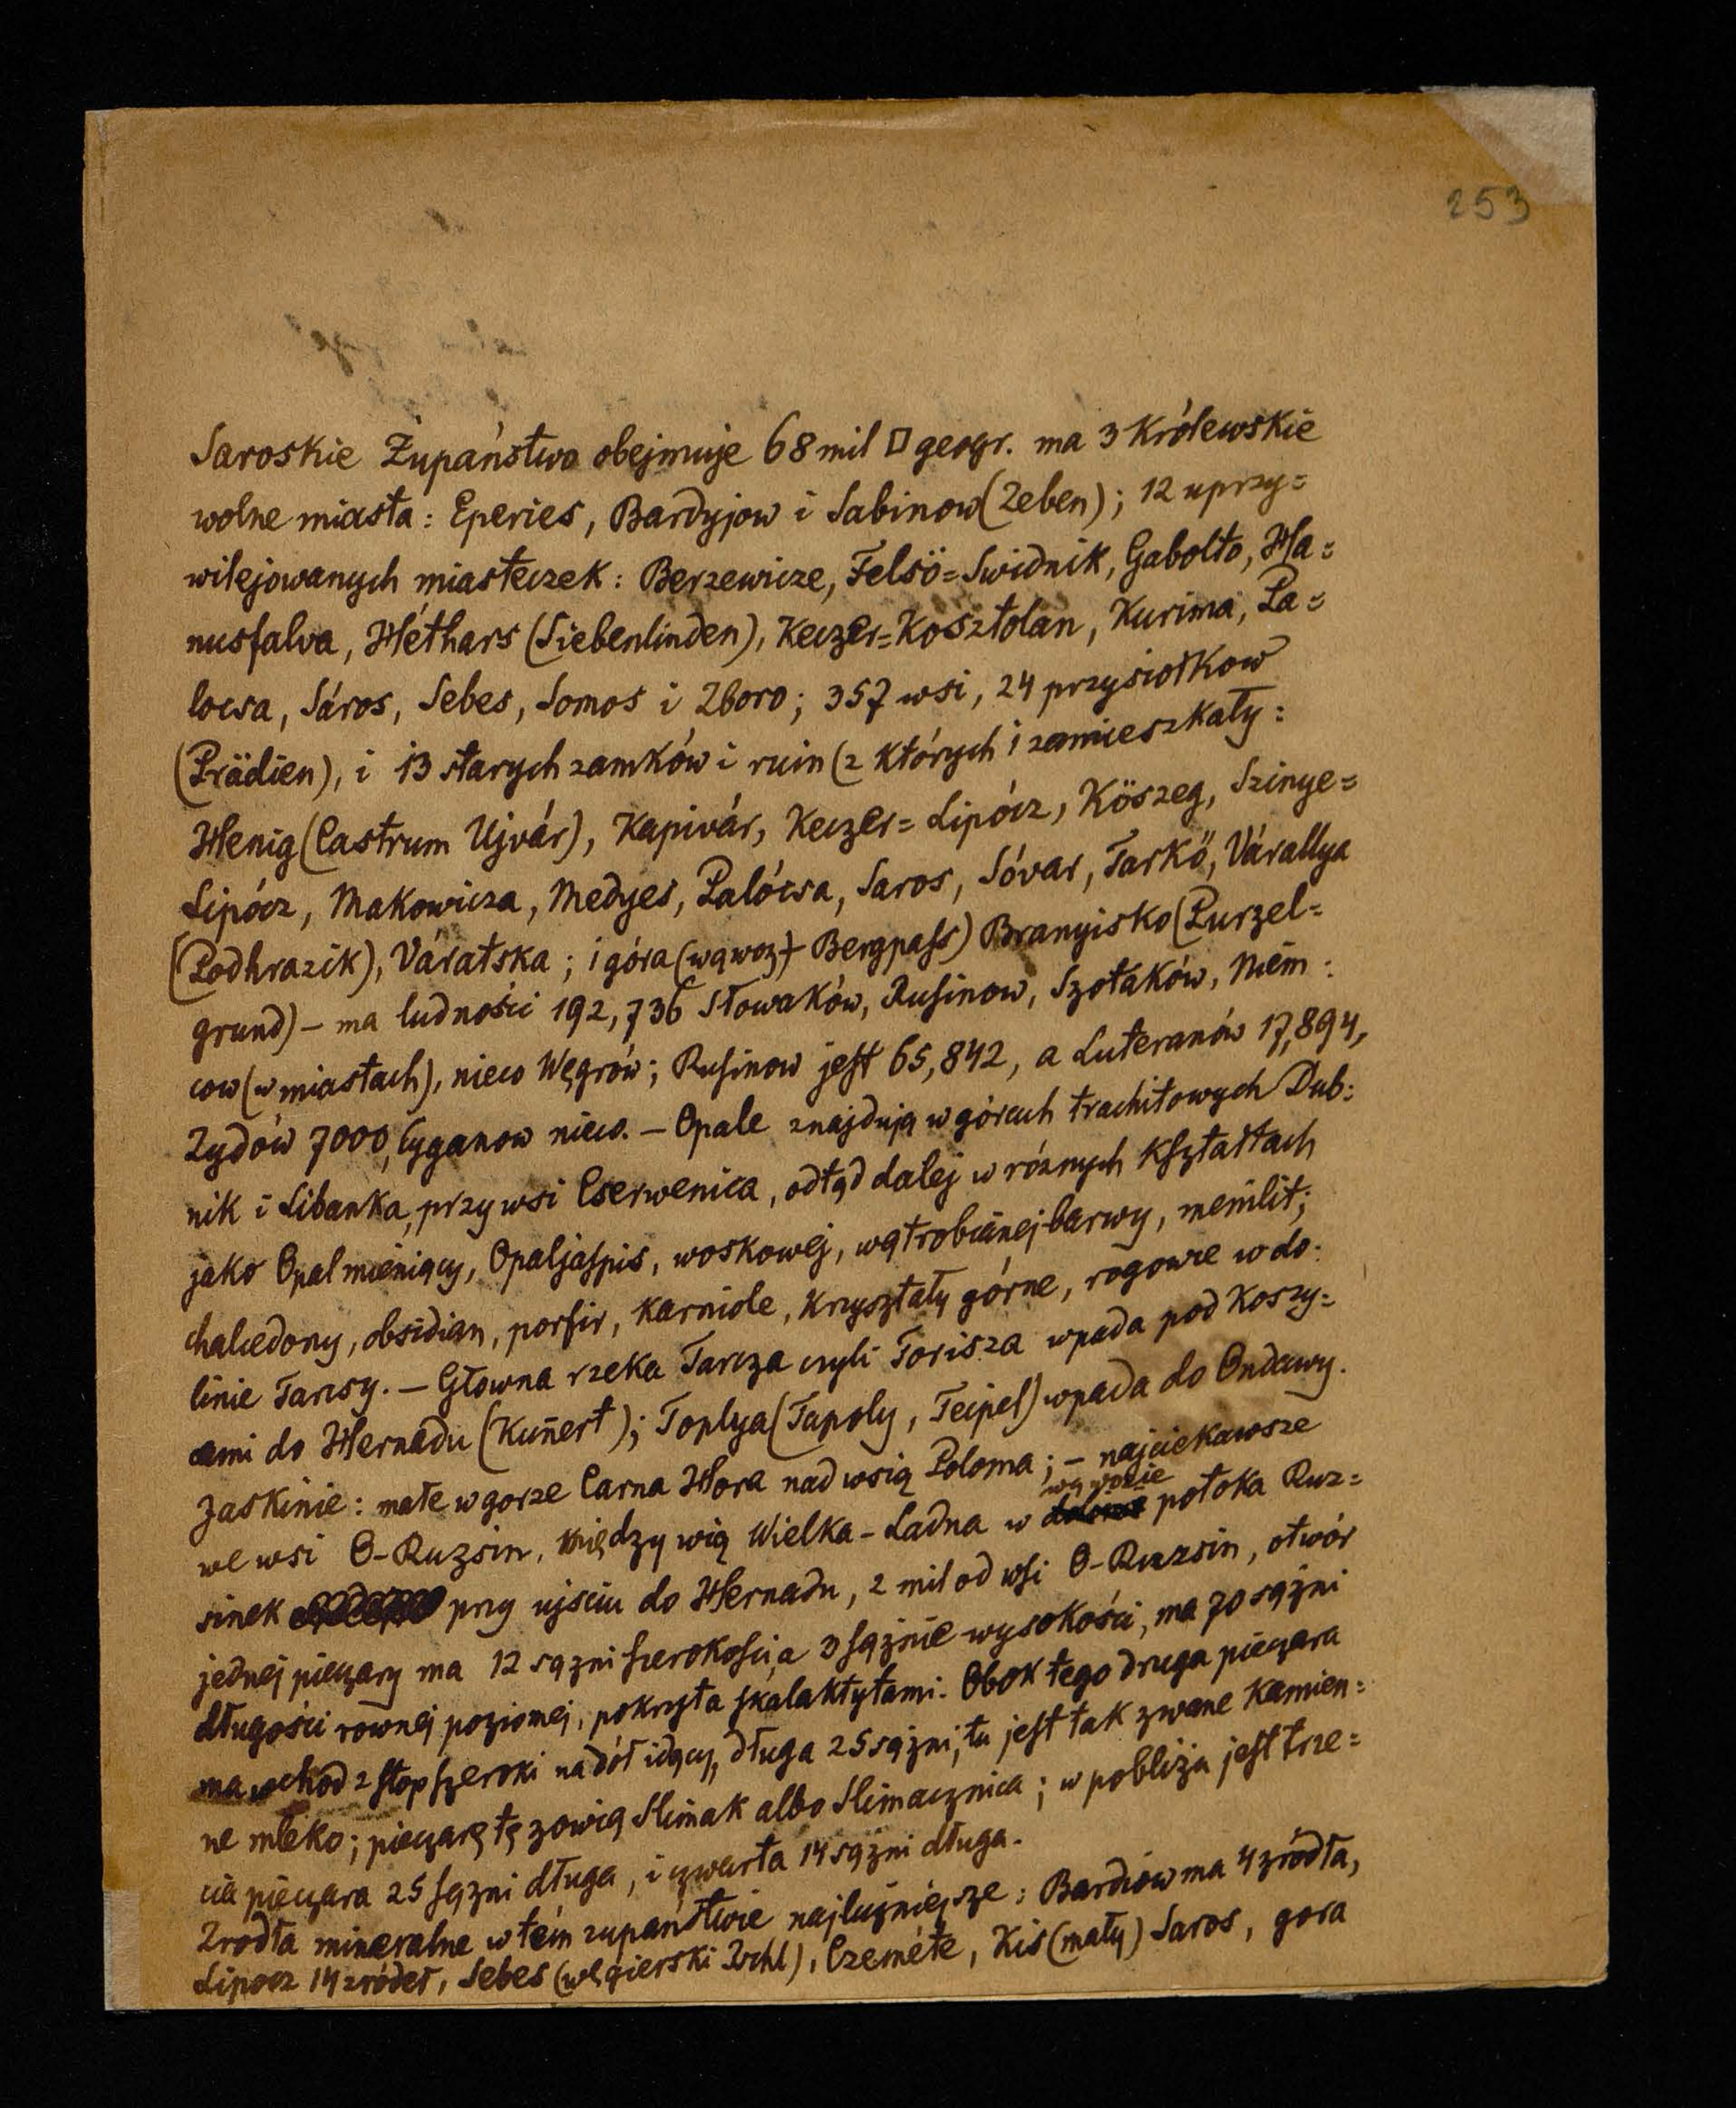 253
Saroskie Župaństwo obejmuje 68 mil □ geogr. ma 3 Królewskie
wolne miasta: Eperies, Bardyjow i Sabinow (Zeben); 12 uprzy=
wilejowanych miasteczek: Berzewicze, Felsö=Swidnik, Gabolto, Ha=
nusfalva, Héthars (Siebenlinden), Keczer=Kosztolan, Kurima, Pa=
locsa, Sáros, Sebes, Somos i Zboro; 357 wsi, 24 przysiołkow
(Prädien), i 13 starych zamków i ruin (z których 1 zamieszkały:
Henig (Castrum Ujvár), Kapivár, Keczer=Lipócz, Köszeg, Szinye=
Lipócz, Makowicza, Medyes, Palócsa, Saros, Sóvar, Tarkö, Várallya
(Podhrazik), Váratska; i góra (wąwoz + Bergpass) Branyisko (Purzel=
grund) – ma ludności 192,736 Słowaków, Rusinow, Szotaków, Niem:
cow (w miastach), nieco Węgrów; Rusinow jest 65,842, a Luteranów 17,894,
Zydów 7000, Cyganow nieco. – Opale znajdują w górach trachitowych Dub:
nik i Libanka, przy wsi Cserwenica, odtąd dalej w róznych kształtach
jako Opal mieniący, Opaljaspis, woskowej, wątrobianej barwy, menilit;
chalcedony, obsidian, porfir, karniole, krysztaty górne, rogowce w do:
linie Tarcsy. – Głowna rzeka Tarcza czyli Torisza wpada pod Koszy=
cami do Hernadu (Kunert); Toplya (Tapoly, Teipel) wpada do Ondawy.
Jaskinie: małe w gorze Carna Hora nad wsią Poloma; – najciekawsze
we wsi O-Ruzsin, między wią Wielka-Ladna w wąwozie potoka Ruz=
sinek przy ujsciu do Hernadu, 2 mil od wsi O-Ruzsin, otwór
jednej pieczary ma 12 sązni szerokości, a 3 sąznie wysokości, ma 70 sążni
długości rownej poziomej, pokryta skalaktytami. Obok tego druga pieczara
ma wchod 2 stop szeroki na dół idący, długa 25 sążni, tu jest tak zwane kamien=
ne mleko; pieczarę tę zowią Slimak albo Slimacznica; w pobliża jest trze=
cia pieczara 25 sązni długa, i czwarta 14 sązni długa.
Zrodła mineralne w tém zupaństwie najlicźniejsze: Bardiów ma 4 zródła,
Lipocz 14 zródeł, Sebes (węgierski Ischl), Czeméte, Kis (mały) Saros, gora